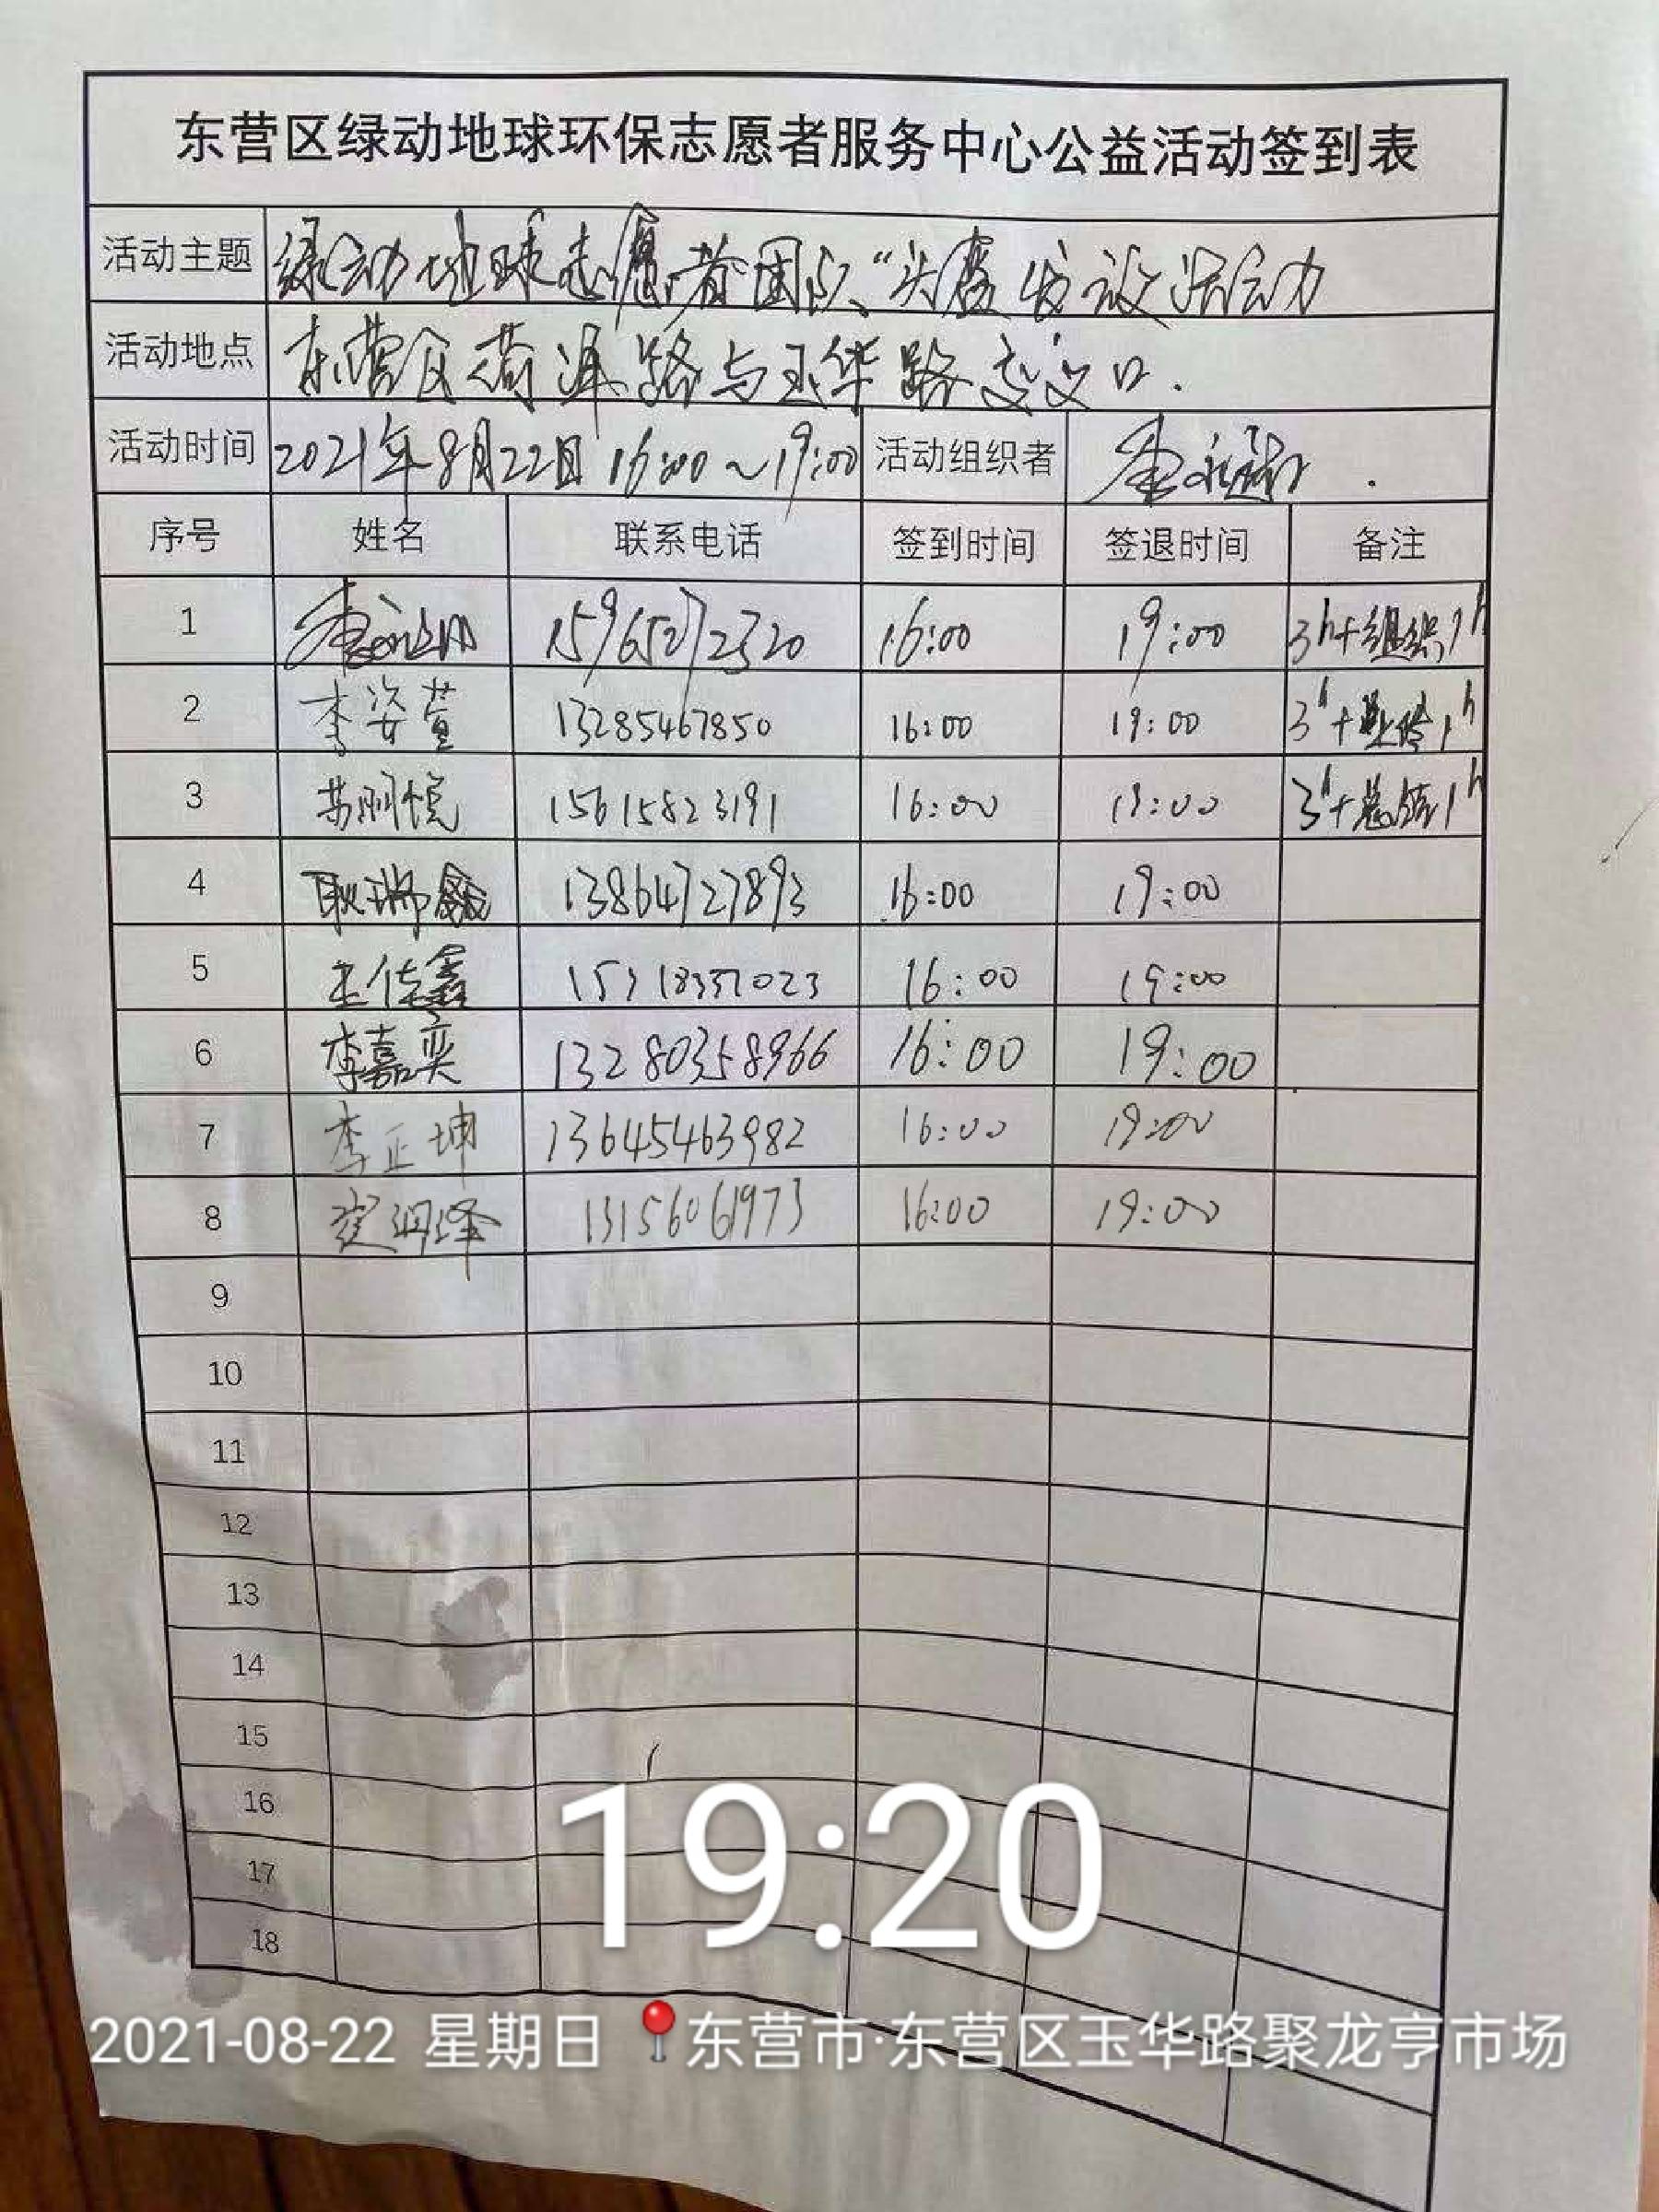 东营区绿动地球环保志愿者服务中心公益活动签到表
活动主题 绿动地球志愿者团队“头盔 活动
活动地点 东营区 路与玉华路交叉口.
活动时间 2021年8月22日 16:00~19:00 活动组织者
序号 姓名 联系电话 签到时间 签退时间 备注
1 15965272320 16:00 19:00 3h+组织1h
2 李姿萱 13285467850 16:00 19:00 3h+ 1h
3 苏润悦 15615823191 16:00 19:00 3h+总结1h
4 耿瑞 13864727893 16:00 19:00
5 王佳鑫 16:00 19:00
6 李嘉奕 13280358966 16:00 19:00
7 李正坤 13645463982 16:00 19:00
8 润泽 13156061973 16:00 19:00
9
10
11
12
13
14
15
16
17
18
19:20
2021-08-22 星期日 东营市·东营区玉华路聚龙亨市场